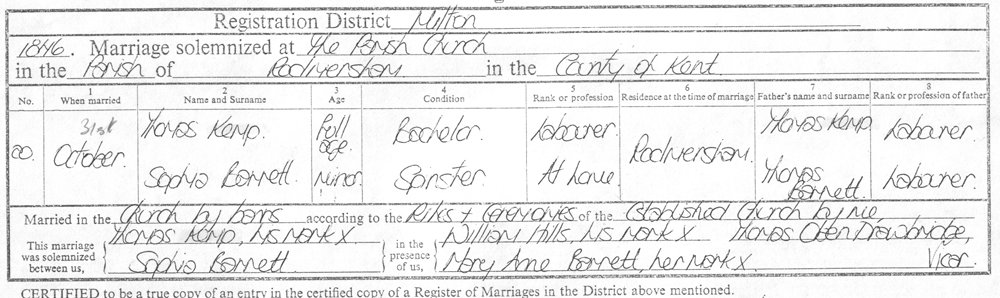 Registration District Milton
1846. Marriage solemnized at The Parish Church
in the Parish of Rodmersham in the County of Kent
No. 1 When married 2 Name and Surname 3 Age 4 Condition 5 Rank or profession 6 Residence at the time of marriage 7 Father's name and surname 8 Rank or profession of father
80. 31st October. Thomas Kemp. Full age. Bachelor. Labourer. Rodmersham. Thomas Kemp Labourer.
Sophia Barnett. Minor. Spinster. At home Thomas Barnett. Labourer.
Married in the Church by banns according to the Rites & Ceremonies of the Established Church by me,
This marriage was solemnized between us, Thomas Kemp, his mark X in the presence of us, William Hills, his mark X Thomas Drawbridge,
Sophia Barnett. Mary Anne Barnett, her mark X Vicar.
CERTIFIED to be a true copy of an entry in the certified copy of a Register of Marriages in the District above mentioned.